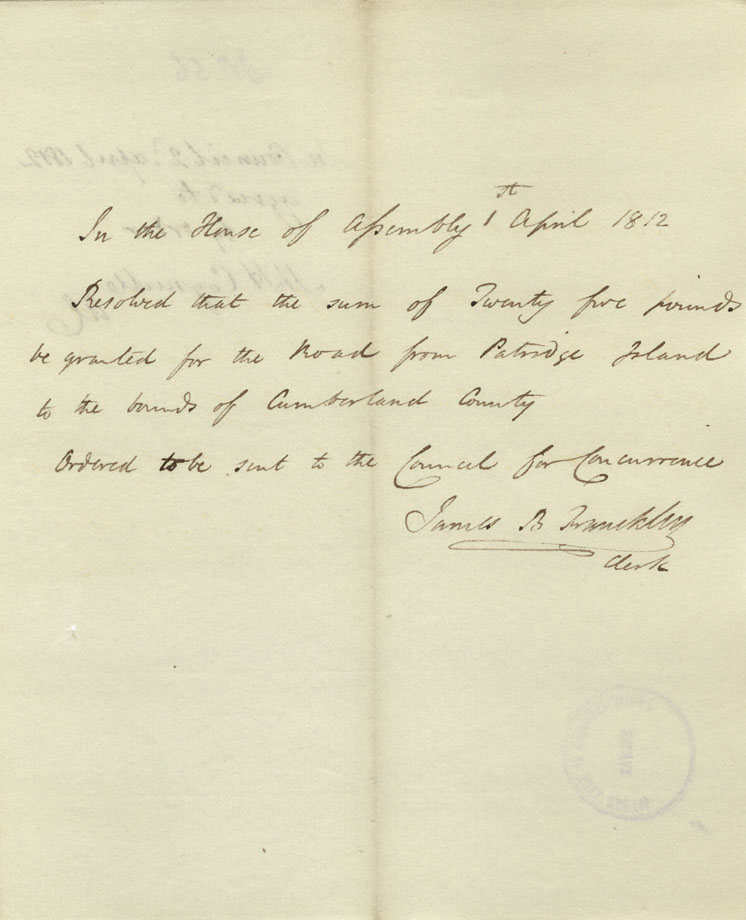 In the House of Assembly 1st April 1812
Resolved that the sum of Twenty five pounds
be granted for the Road from Patridge Island
to the bounds of Cumberland County
Ordered to be sent to the Council for Concurrence
James B Franckley
Clerk